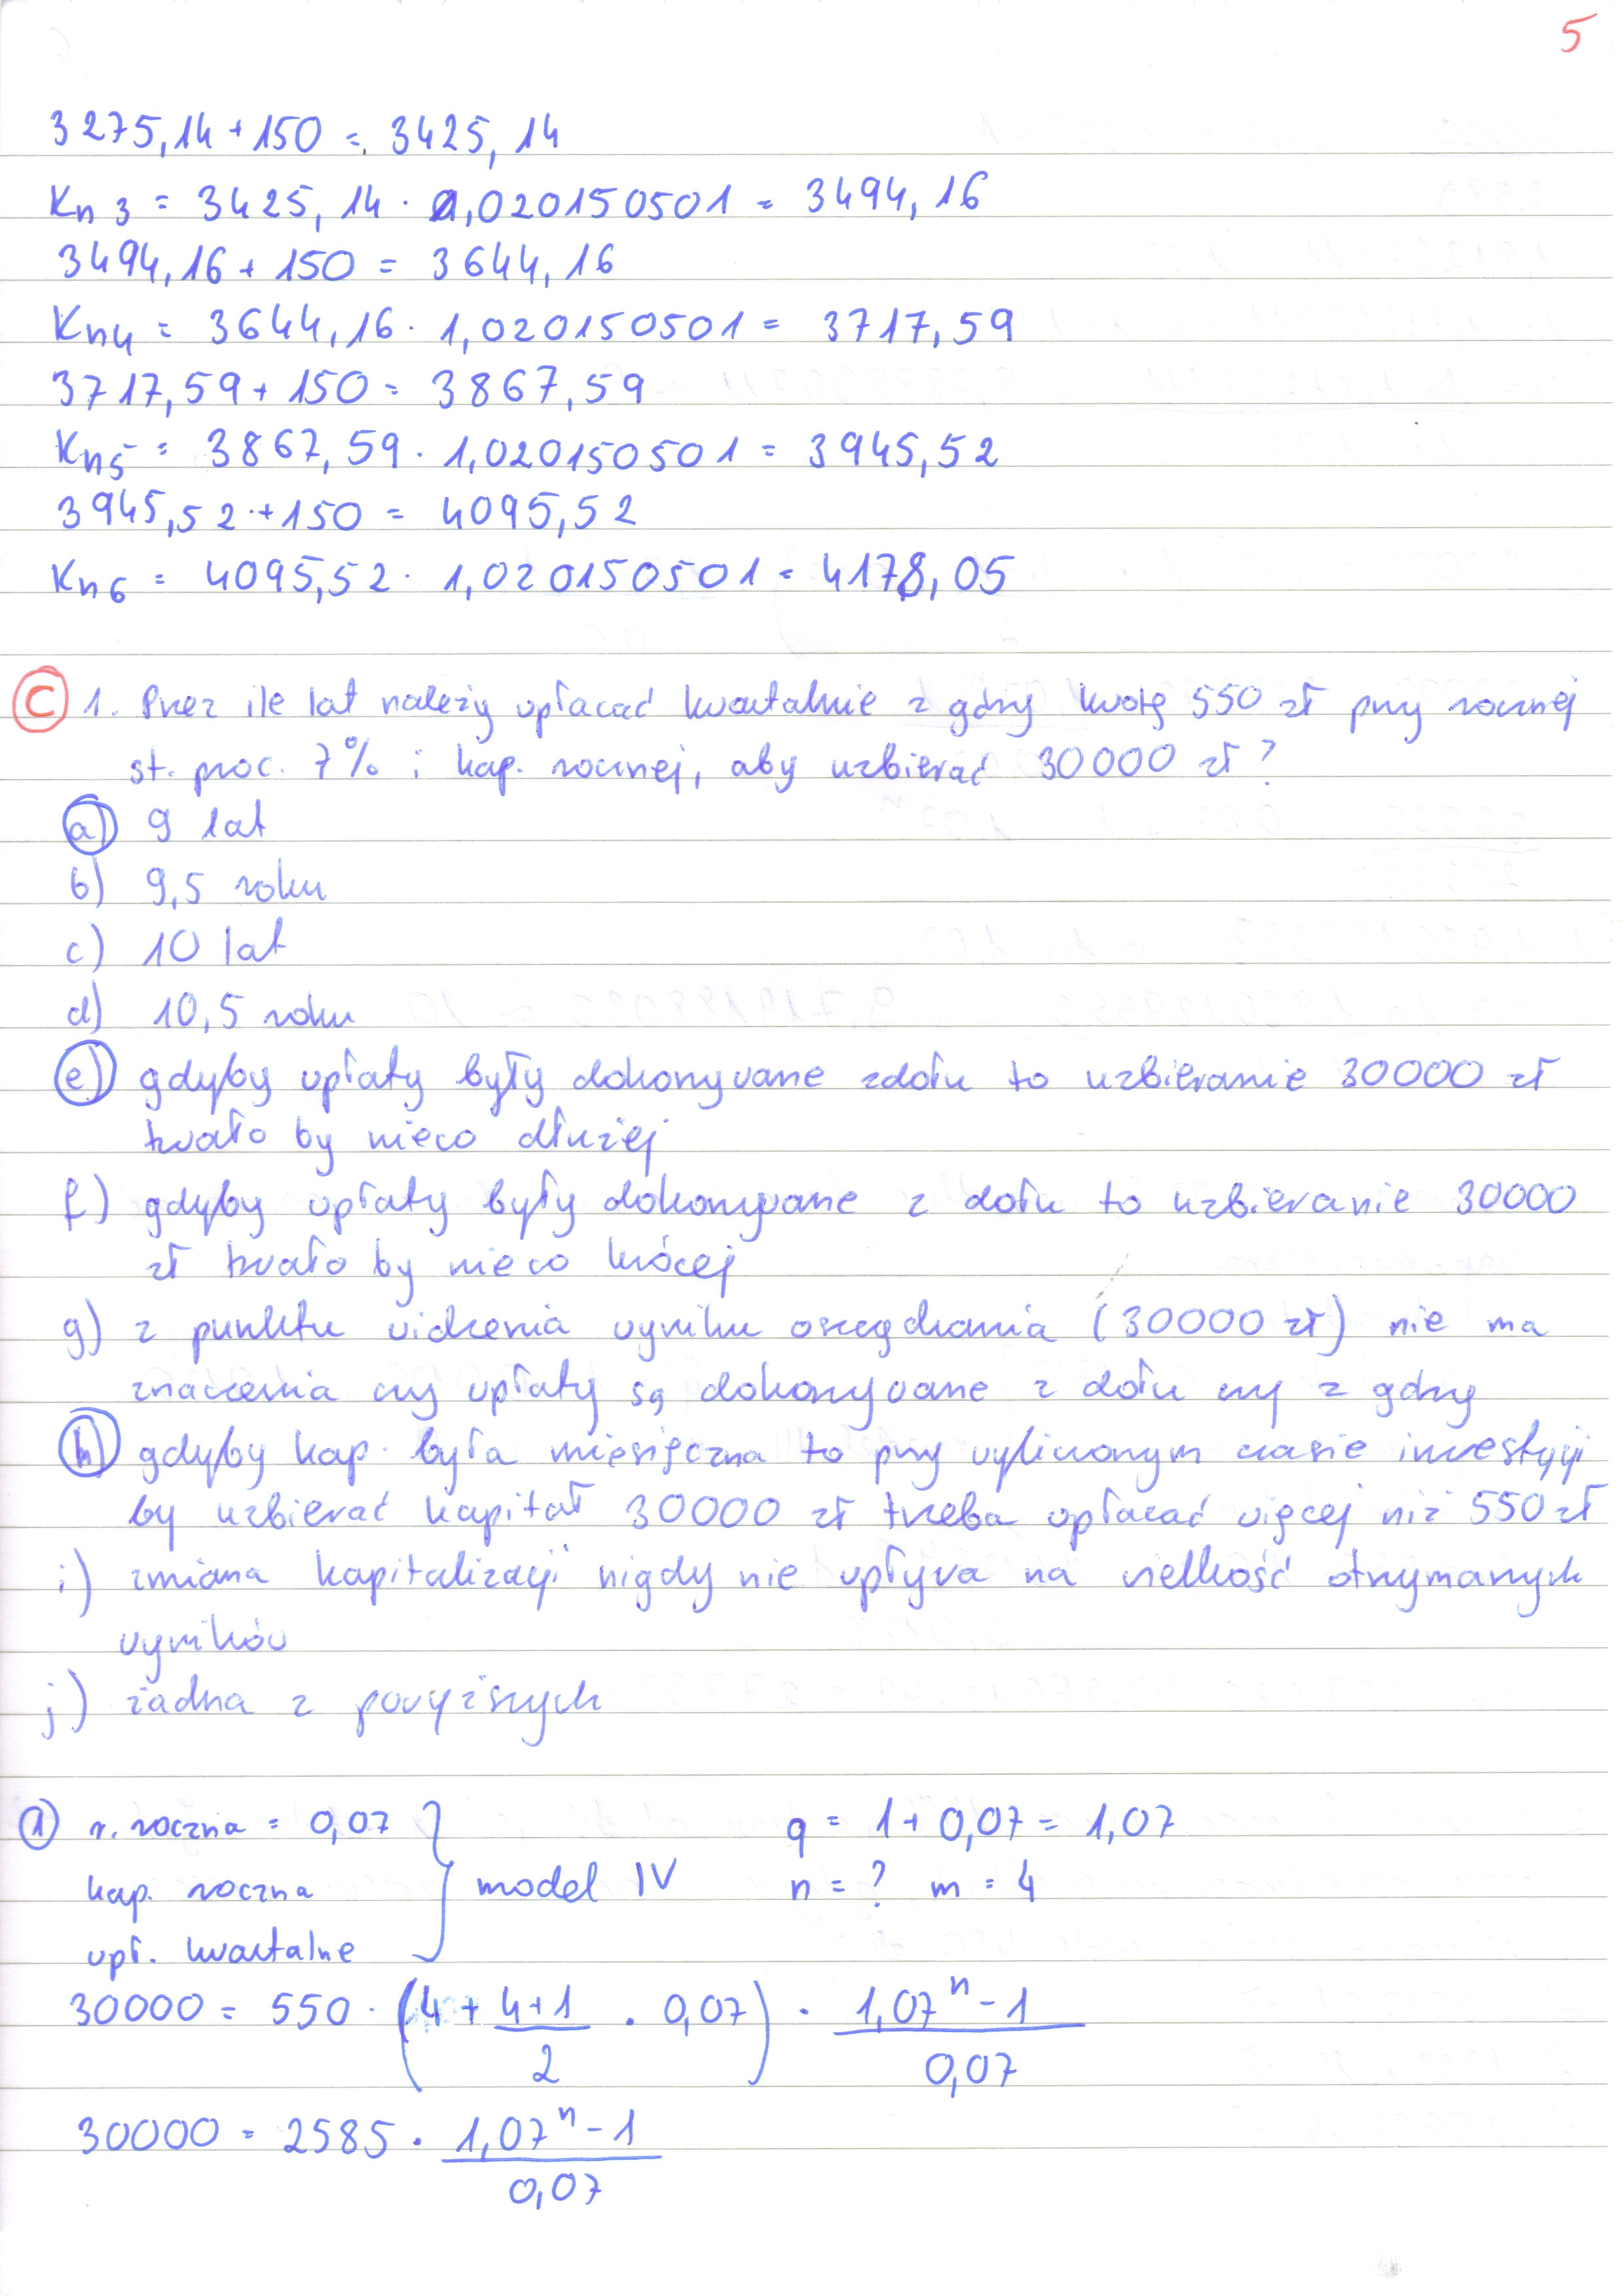 5
3275,14 + 150 = 3425,14
Kn3 = 3425,14 · 1,020150501 = 3494,16
3494,16 + 150 = 3644,16
Kn4 = 3644,16 · 1,020150501 = 3717,59
3717,59 + 150 = 3867,59
Kn5 = 3867,59 · 1,020150501 = 3945,52
3945,52 + 150 = 4095,52
Kn6 = 4095,52 · 1,020150501 = 4178,05
C 1. Przez ile lat należy wpłacać kwartalnie z góry kwotę 550 zł przy rocznej
st. proc. 7% i kap. rocznej, aby uzbierać 30000 zł?
a) 9 lat
b) 9,5 roku
c) 10 lat
d) 10,5 roku
e) gdyby wpłaty były dokonywane zdołu to uzbieranie 30000 zł
trwało by nieco dłużej
f) gdyby wpłaty były dokonywane z dołu to uzbieranie 30000
zł trwało by nieco krócej
g) z punktu widzenia wyniku oszczędzania (30000 zł) nie ma
znaczenia czy wpłaty są dokonywane z dołu czy z góry
h) gdyby kap. była miesięczna to przy wyliczonym czasie inwestycji
by uzbierać kapitał 30000 zł trzeba wpłacać więcej niż 550 zł
i) zmiana kapitalizacji nigdy nie wpływa na wielkość otrzymanych
wyników
j) żadna z powyższych
1) r. roczna = 0,07 q = 1 + 0,07 = 1,07
kap. roczna } model IV n = ? m = 4
wpł. kwartalne
30000 = 550 · (4 + \frac{4+1}{2} · 0,07) · \frac{1,07^n - 1}{0,07}
30000 = 2585 · \frac{1,07^n - 1}{0,07}